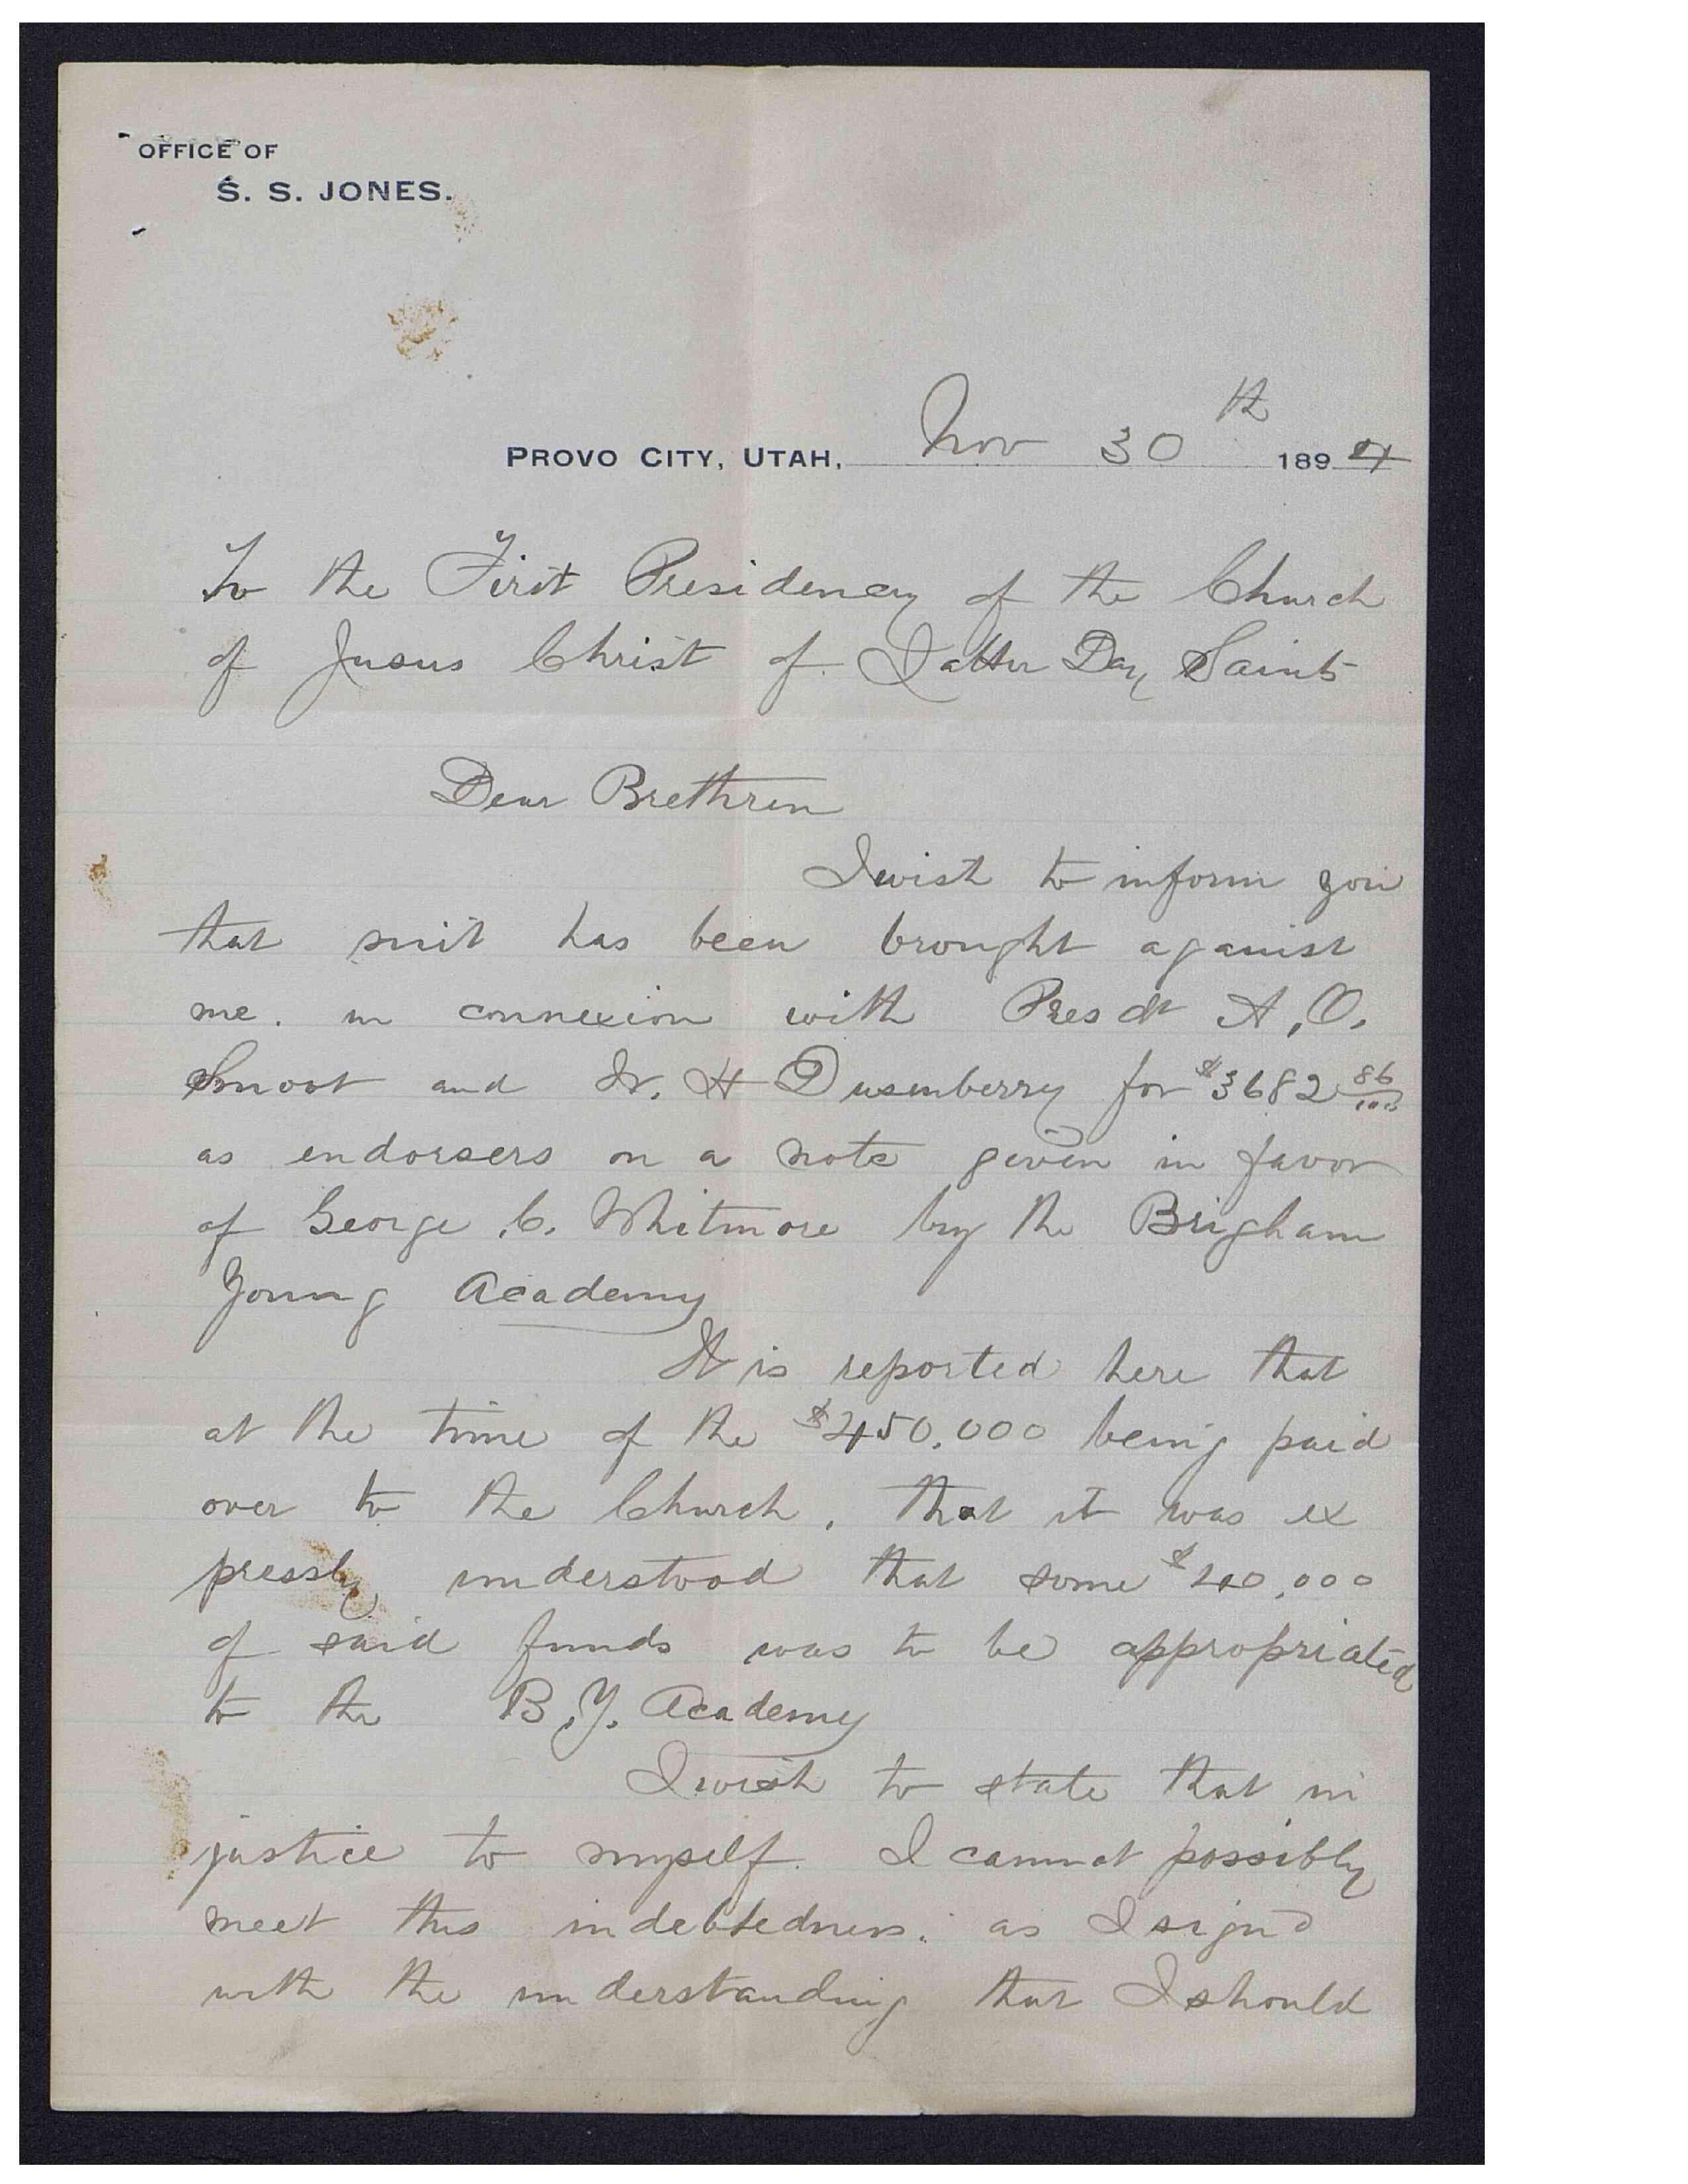 OFFICE OF
S. S. JONES.
PROVO CITY, UTAH, Nov 30th 1894
To the First Presidency of the Church
of Jesus Christ of Latter Day Saints
Dear Brethren
I wish to inform you
that suit has been brought against
me. in connexion with Presdt A. O.
Smoot and W. H Dusenberry for $3682 86/100
as endorsers on a note given in favor
of George C. Whitmore by the Brigham
Young Academy
It is reported here that
at the time of the $450.000 being paid
over to the Church, that it was ex
pressly understood that some $200,000
of said funds was to be appropriated
to the B.Y. Academy
I wish to state that in
justice to myself. I cannot possibly
meet this indebtedness. as I signd
with the understanding that I should